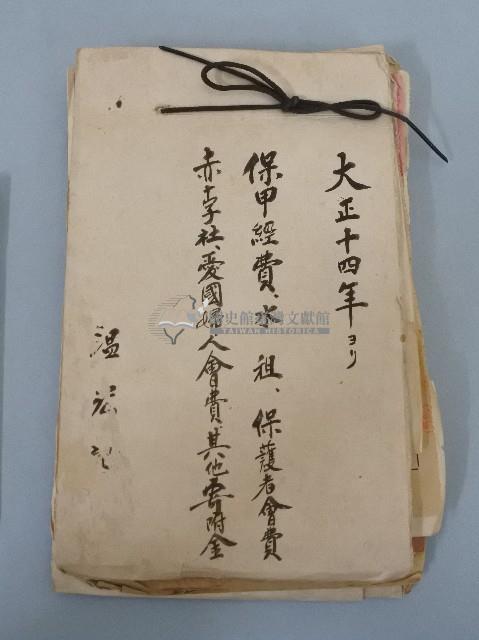 大正十四年ヨリ
保甲經費、水租、保護者會費
赤十字社、愛國婦人會費其他寄附金
溫
國史館臺灣文獻館
TAIWAN HISTORICA